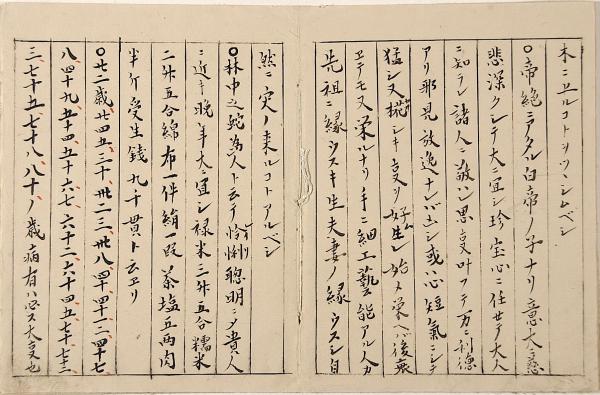 木ニヨルコトヲツヽシムベシ
○帝絶ニアタル白帝ノ子ナリ意太慈
悲深クシテ大ニ宜シ珍宝心ニ任セテ大人
ニ知ラレ諸人ニ敬ハレ思夏叶フテ万ニ利徳
アリ邪見放逸ナレバ凶シ或ハ心短氣ニシテ
猛シ又 シキ夏リ好ム生レ始メ栄ヘバ後衰
ヱテモ又栄ルナリ手ニ細工藝能アル人カ
先祖ニ縁ウスキ生夫妻ノ縁ウスシ自
然ニ灾ノ来ルコトアルベシ
○林中之蛇為人ト云テ怜悧聰明ニメ貴人
ニ近キ晩年大ニ宜シ禄米三舛五合糯米
二舛五合綿布一伴絹一段茶塩五两肉
半斤受生錢九千貫ト云ヱリ
○廿二歳廿四五、三十卅二三、卅八、四十四十二四十七
八、四十九五十四、五十六七、六十二六十四五、七十七十二
三、七十五、七十八、八十、ノ歳病有ハ必ス大夏也